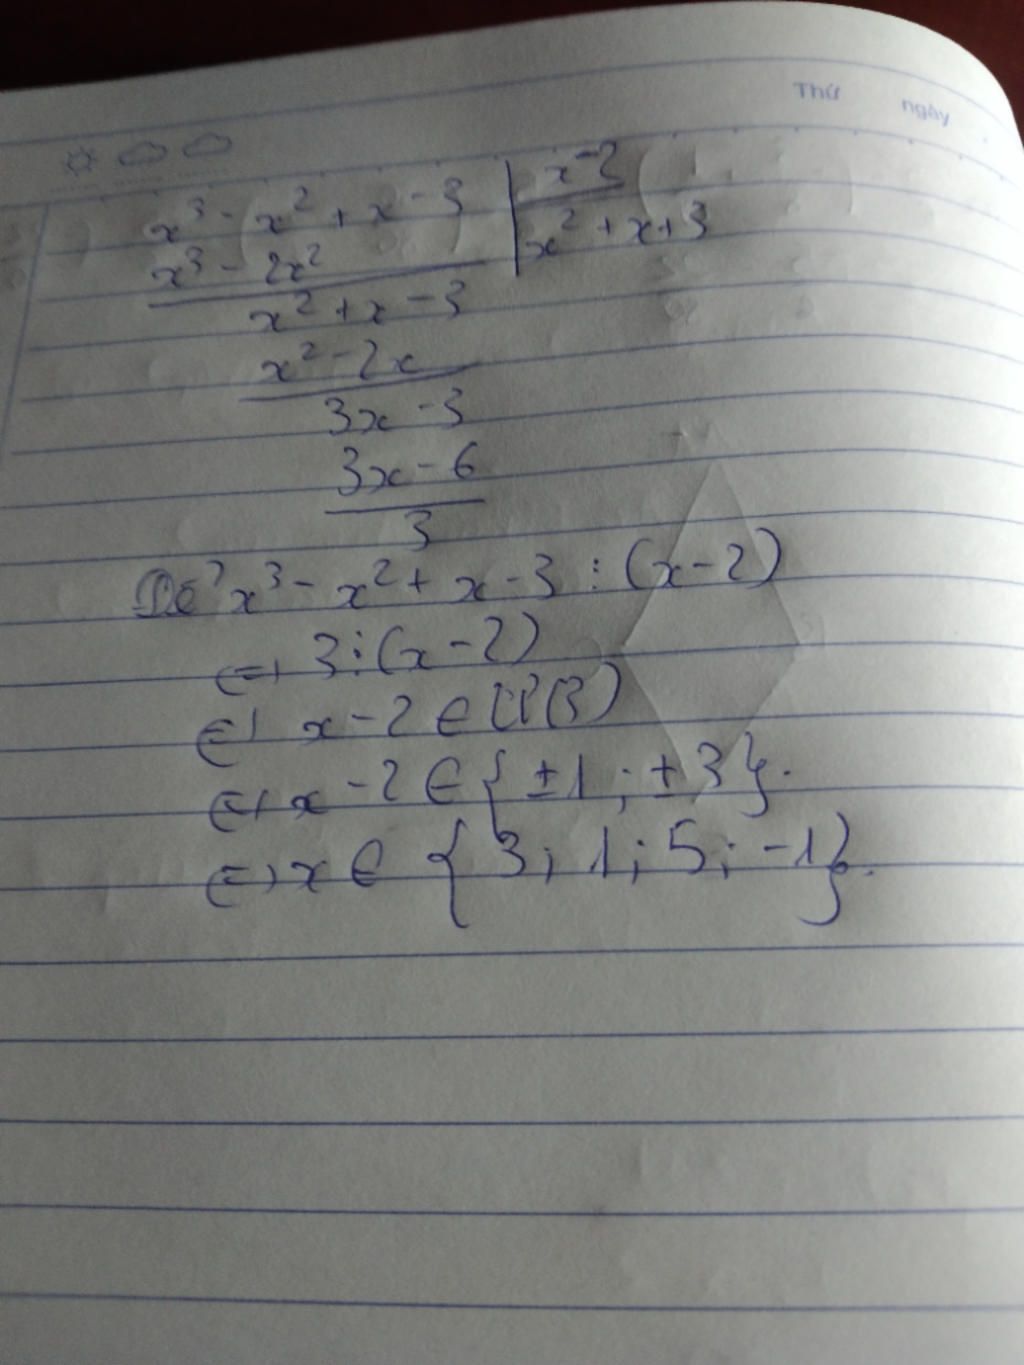 Thứ ngày
x³ - x² + x - 3 | x - 2
x³ - 2x² | x² + x + 3
x² + x - 3
x² - 2x
3x - 3
3x - 6
3
Để x³ - x² + x - 3 ⋮ (x - 2)
<=> 3 ⋮ (x - 2)
<=> x - 2 ∈ Ư(3)
<=> x - 2 ∈ { ±1 ; ±3 }.
<=> x ∈ { 3 ; 1 ; 5 ; -1 }.